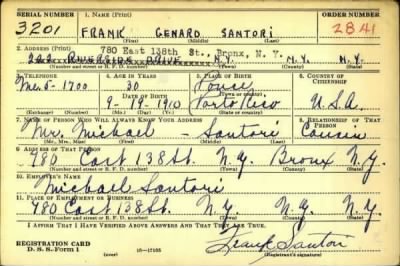 SERIAL NUMBER 1. NAME (Print) ORDER NUMBER
3201 FRANK GENARO SANTORI 2841
(First) (Middle) (Last)
2. ADDRESS (Print) 780 East 138th St., Bronx, N. Y.
222 RIVERSIDE DRIVE N.Y. N.Y. N.Y.
(Number and street or R. F. D. number) (Town) (County) (State)
3. TELEPHONE 4. AGE IN YEARS 5. PLACE OF BIRTH 6. COUNTRY OF CITIZENSHIP
Me. 5-1700 30 Ponce
DATE OF BIRTH
9-19-1910 Porto Rico U.S.A.
(Exchange) (Number) (Mo.) (Day) (Yr.) (State or country)
7. NAME OF PERSON WHO WILL ALWAYS KNOW YOUR ADDRESS 8. RELATIONSHIP OF THAT PERSON
Mr. Michael - Santori Cousin
(Mr., Mrs., Miss) (First) (Middle) (Last)
9. ADDRESS OF THAT PERSON
780 East 138 St. N.Y. Bronx N.Y.
(Number and street or R. F. D. number) (Town) (County) (State)
10. EMPLOYER'S NAME
Michael Santori
11. PLACE OF EMPLOYMENT OR BUSINESS
780 East 138 St. N.Y. N.Y. N.Y.
(Number and street or R. F. D. number) (Town) (County) (State)
I AFFIRM THAT I HAVE VERIFIED ABOVE ANSWERS AND THAT THEY ARE TRUE.
REGISTRATION CARD
D. S. S. Form 1 (over) 16-17105 Frank Santori
(Registrant's signature)